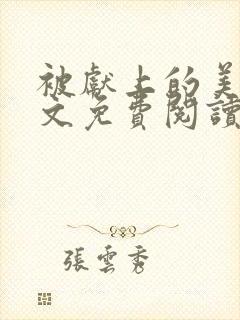 被獻上的美
文免費閱讀
張雲秀